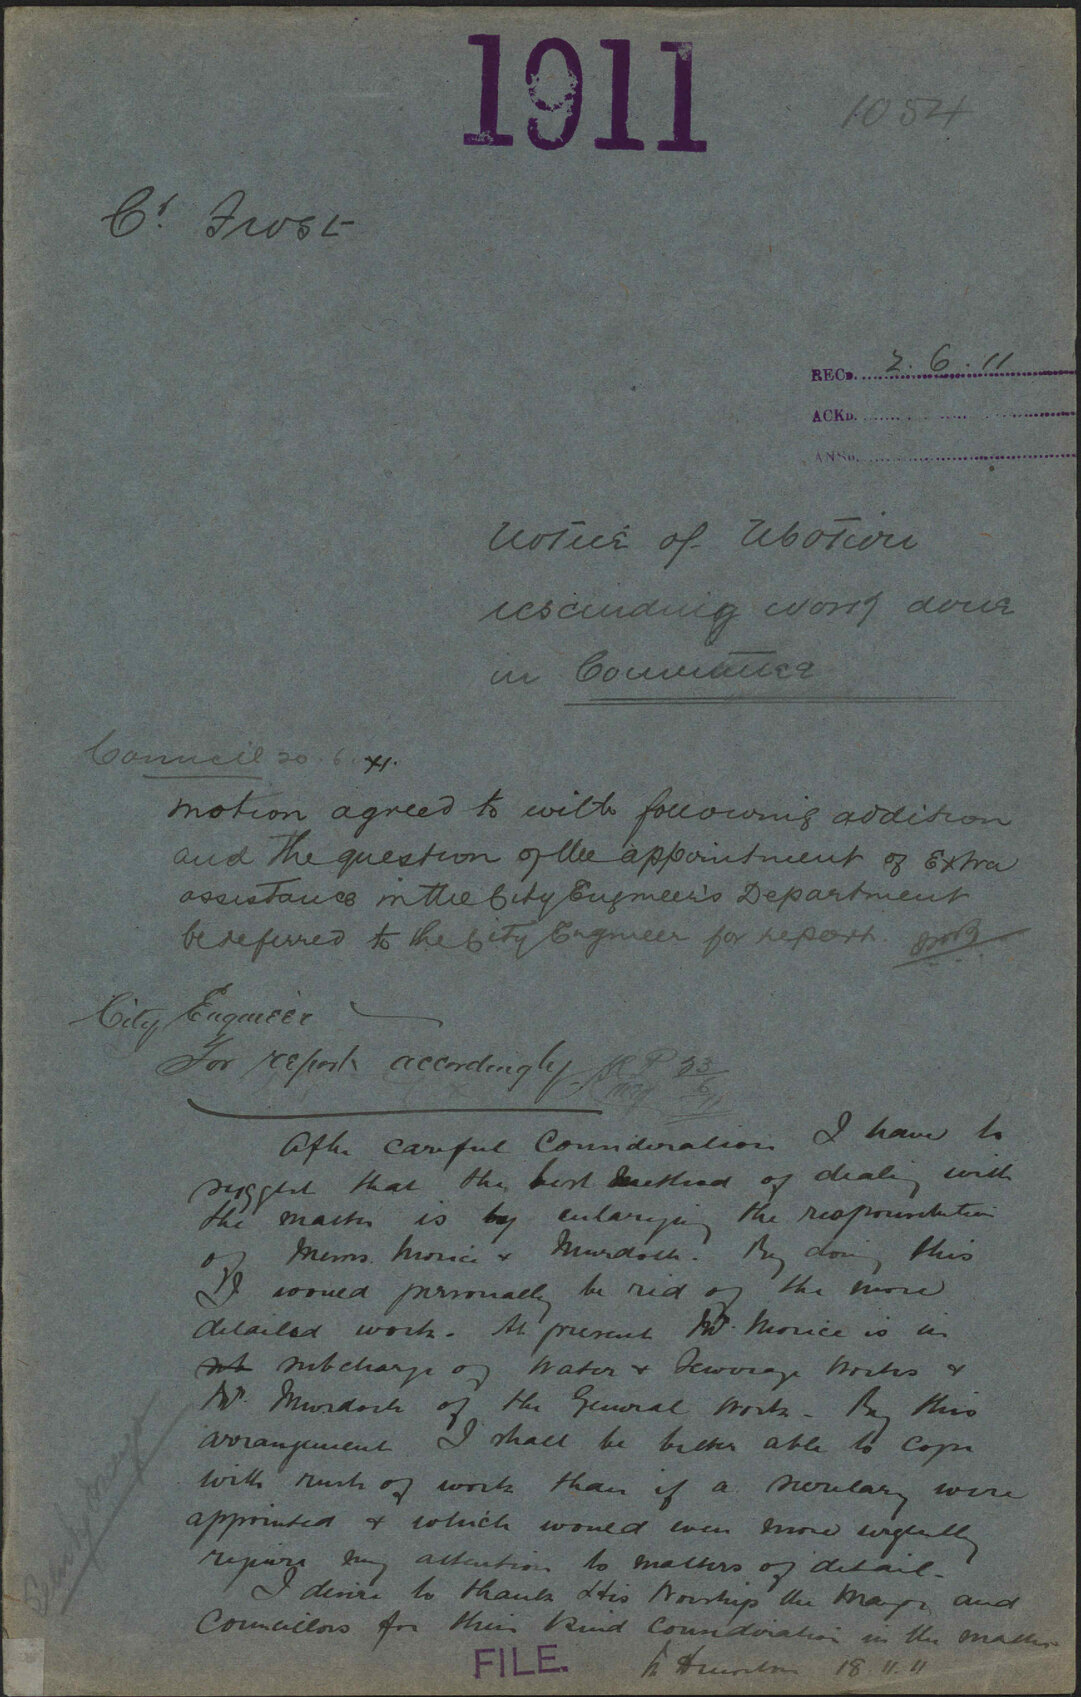 1911
1054
Cr. Frost
RECD. 2.6.11
ACKD.
ANSD.
Notice of Motion
rescinding work done
in Committee
Council 20.6.11.
motion agreed to with following addition
and the question of the appointment of Extra
assistance in the City Engineer's Department
be referred to the City Engineer for report.
City Engineer
For report accordingly 23/6/11
After careful Consideration I have to
suggest that the best method of dealing with
the matter is by enlarging the responsibilities
of Messrs. Morice & Murdoch. By doing this
I would personally be rid of the more
detailed work. At present Mr. Morice is in
subcharge of Water & Sewerage Works &
Mr. Murdoch of the General Work. By this
arrangement I shall be better able to cope
with rush of work than if a secretary were
appointed & which would even more urgently
require my attention to matters of detail.
I desire to thank His Worship the Mayor and
Councillors for their kind consideration in the matter
18.11.11
FILE.